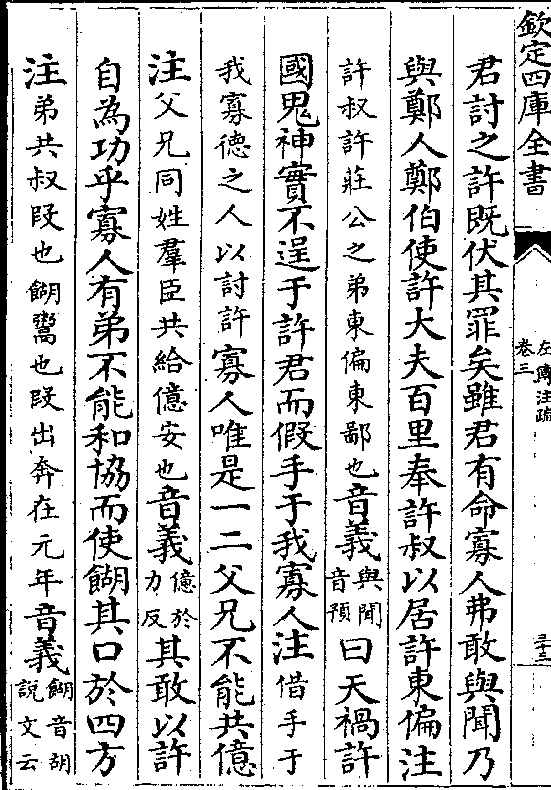 欽定四庫全書
左傳注疏
卷三
三十三
君討之許既伏其罪矣雖君有命寡人弗敢與聞乃
與鄭人鄭伯使許大夫百里奉許叔以居許東偏注
許叔許莊公之弟東偏東鄙也音義與聞音預曰天禍許
國鬼神實不逞于許君而假手于我寡人注借手于
我寡德之人以討許寡人唯是一二父兄不能共億
注父兄同姓羣臣共給億安也音義億於力反其敢以許
自為功乎寡人有弟不能和協而使餬其口於四方
注弟共叔段也餬鬻也段出奔在元年音義餬音胡說文云